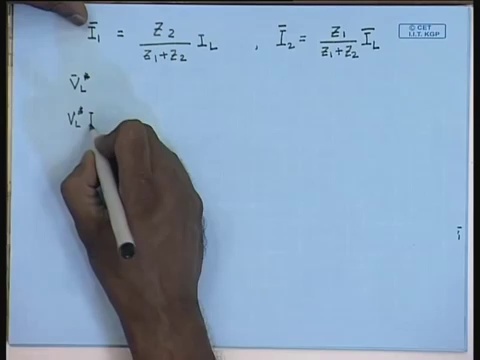 Ī₁ = Z₂ / (Z₁+Z₂) I_L , Ī₂ = Z₁ / (Z₁+Z₂) Ī_L
© CET
I.I.T. KGP
V̄_L*
V_L* I
ī